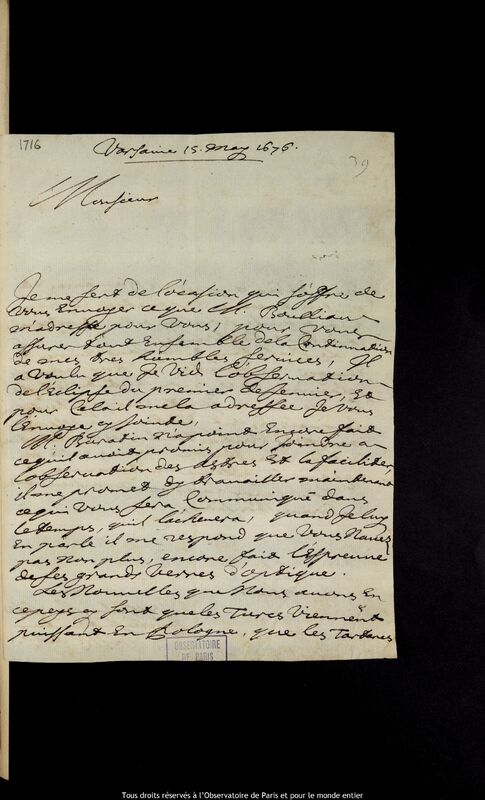 1716
Varsavie 15. may 1676.
39
Monsieur
Je me sert de l'ócasion qui s'óffre de
Vous Envoyer ce que M. Boulliau
m'adresse pour Vous, pour vous
assurer tout Ensemble de la Continuation
de mes tres humbles services, Il
a Voulu que Je Vid l'observation
de l'Eclipse du premier De Jenvier, Et
pour Cela il me la adressée Je vous
l'envoye cy Jointe,
Mr. Buratin n'a point Encore fait
ce qu'il avoit promis pour Joindre a
l'observation des Astres Et la faciliter,
il me promet dy travailler maintenant
ce qui Vous sera Communiqué dans
le temps, qu'il l'achevera, quand Je luy
En parle il me respond que Vous N'avez
pas Non plus, encore fait l'Espreuve
de ses grands Verres d'optique.
Les Nouvelles que Nous avons En
ce pays cy sont que les Turcs Viennent
puissant En Pologne, que les Tartares
OBSERVATOIRE
DE PARIS
Tous droits réservés à l'Observatoire de Paris et pour le monde entier